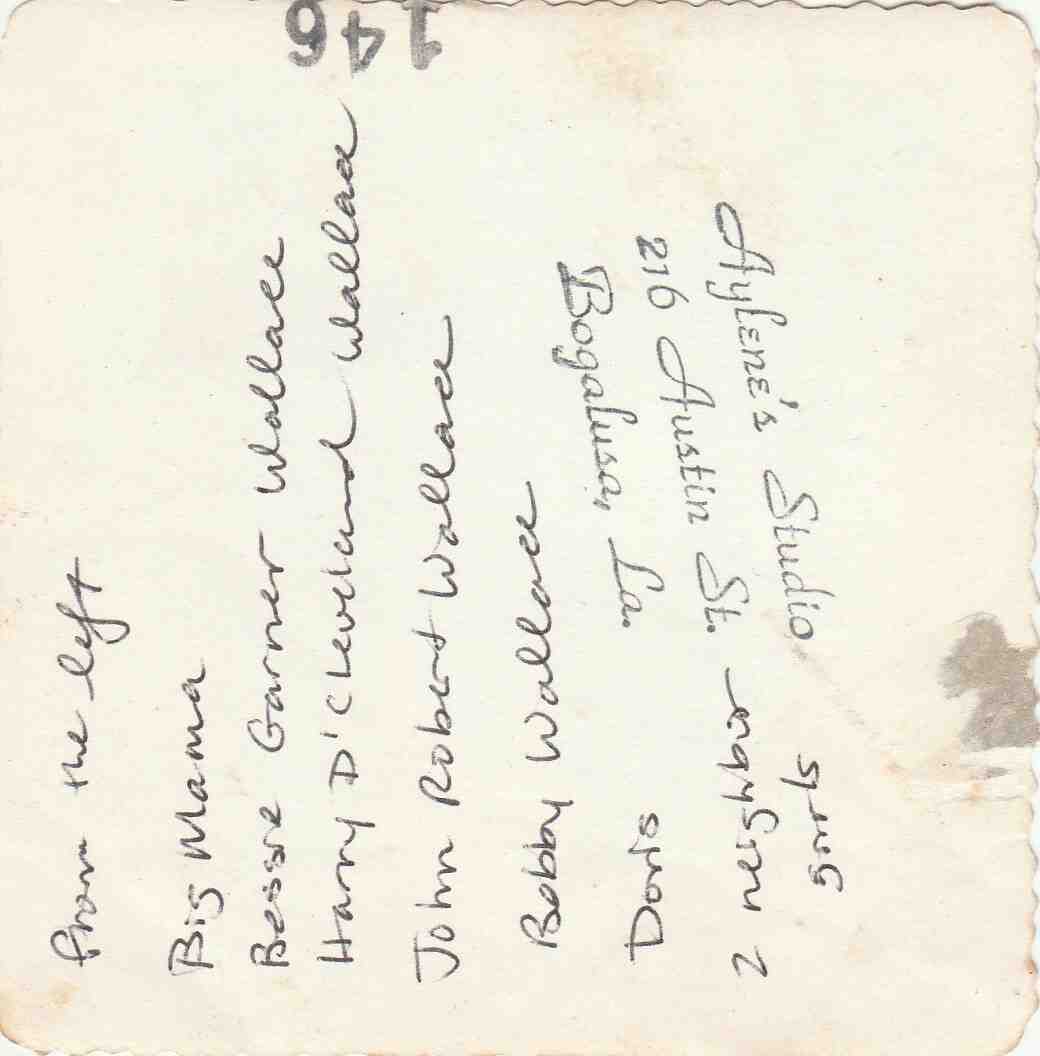 146
from the left
Big Mama
Bessie Garner Wallace
Harry D'Cleveland Wallace
John Robert Wallace
Bobby Wallace
Doris
2 neighbor
girls
Aylene's Studio
216 Austin St.
Bogalusa, La.